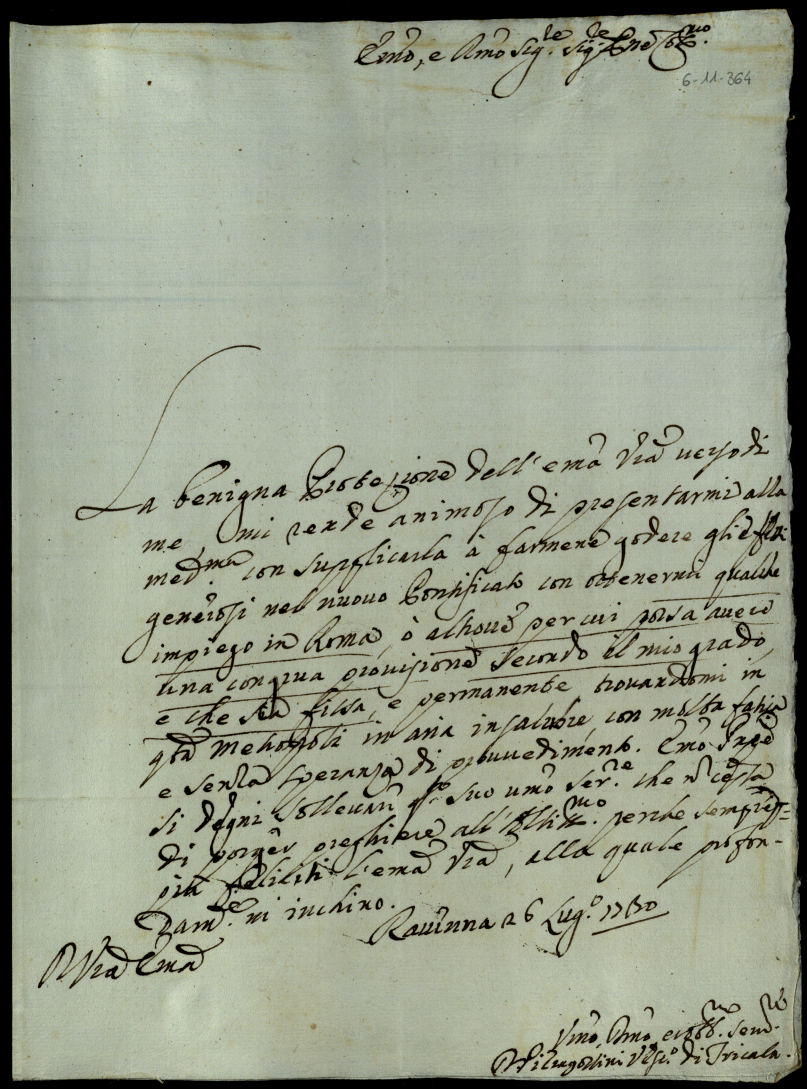 Emo, e Rmo Sig.re Sig.re Pne Col.mo
6-11-364
La benigna Protezione dell'ema Vra verso di
me, mi rende animoso di presentarmi alla
med.ma con supplicarla à farmene godere gli effetti
generosi nel nuovo Pontificato con ottenermi qualche
impiego in Roma, ò altrove per cui possa avere
una congrua provisione secondo il mio grado,
e che sia fissa, e permanente trovandomi in
qta Metropoli in aria insalubre, con molta fatica
e senza speranza di provvedimento. Emo Pnpe
si degni sollevare qto suo umo ser.re che n cessa
di porger preghiere all'Altis.mo perche sempre
più feliciti l'ema Vra, alla quale profon-
dam.te mi inchino.
Ravenna 26 Lug.o 1730
D Vra Ema
Umo, Dmo, e obb.mo Serv.re
di Tricala.